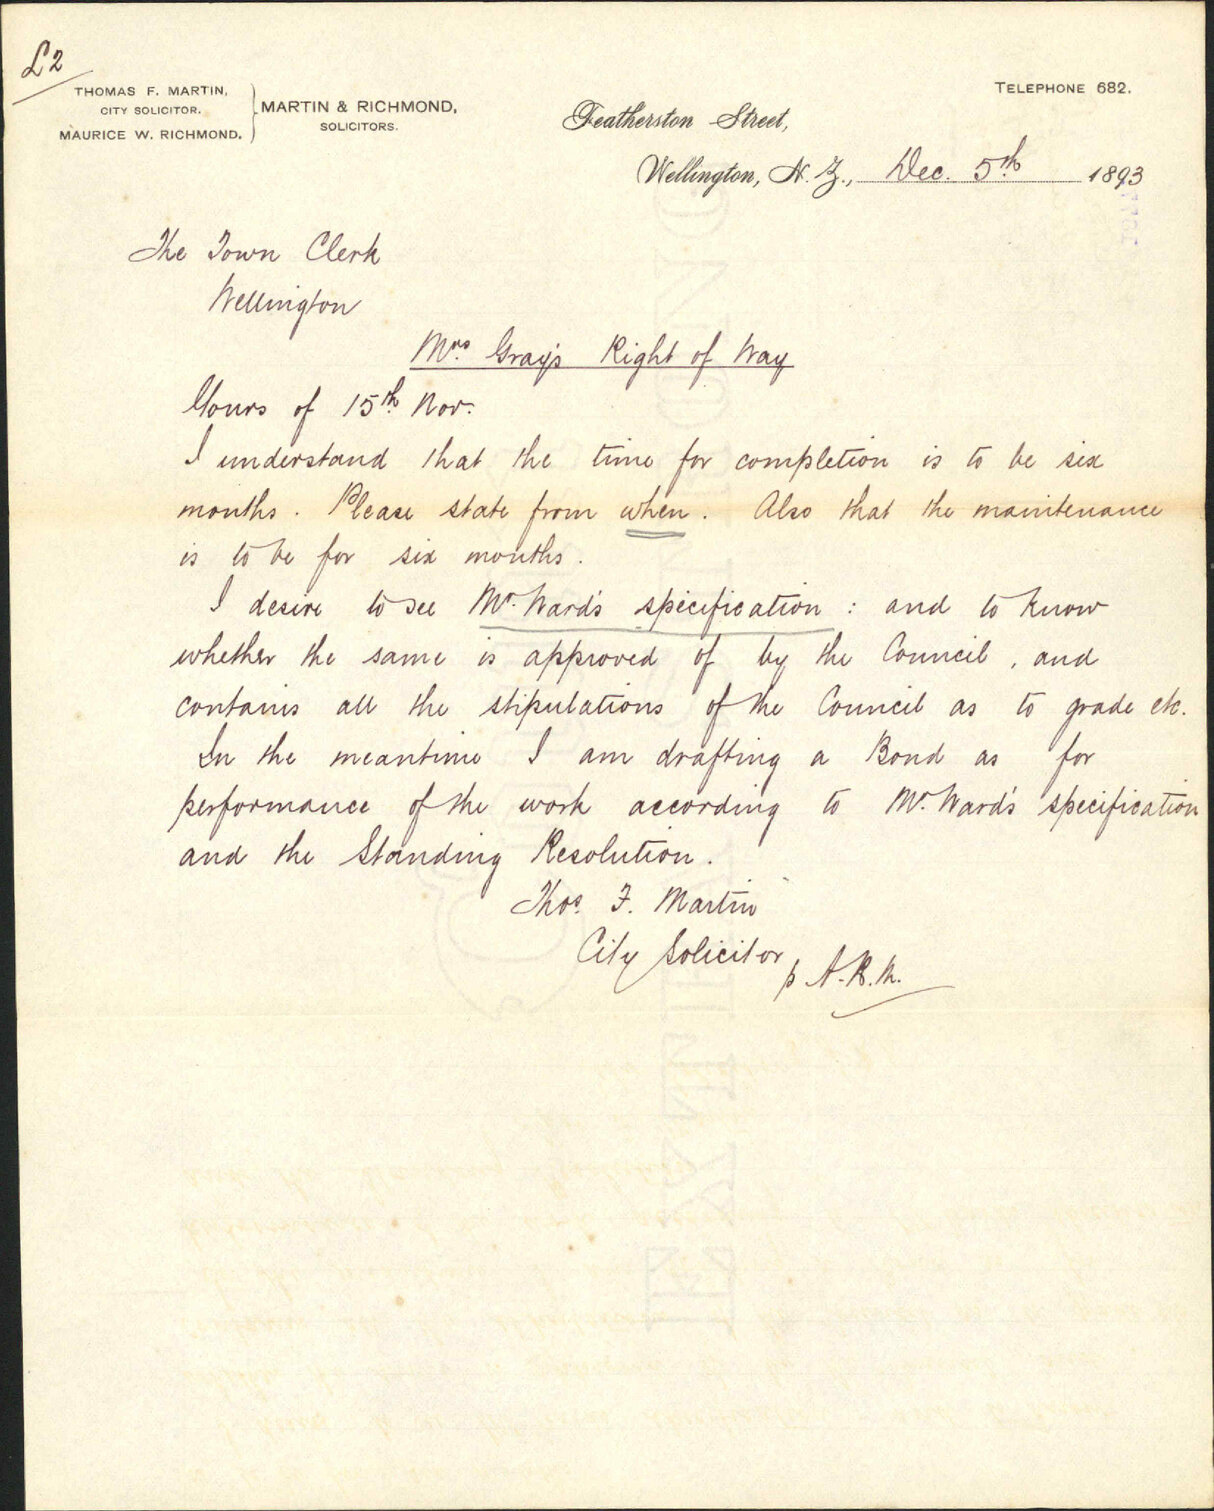 £2
THOMAS F. MARTIN,
CITY SOLICITOR.
MAURICE W. RICHMOND.
MARTIN & RICHMOND,
SOLICITORS.
TELEPHONE 682.
Featherston Street,
Wellington, N. Z., Dec. 5th 1893
The Town Clerk
Wellington
Mrs. Gray's Right of Way
Yours of 15th Nov.
I understand that the time for completion is to be six
months. Please state from when. Also that the maintenance
is to be for six months.
I desire to see Mr. Ward's specification: and to know
whether the same is approved of by the Council, and
contains all the stipulations of the Council as to grade etc.
In the meantime I am drafting a Bond as for
performance of the work according to Mr. Ward's specification
and the Standing Resolution.
Thos. F. Martin
City Solicitor
p A.R.